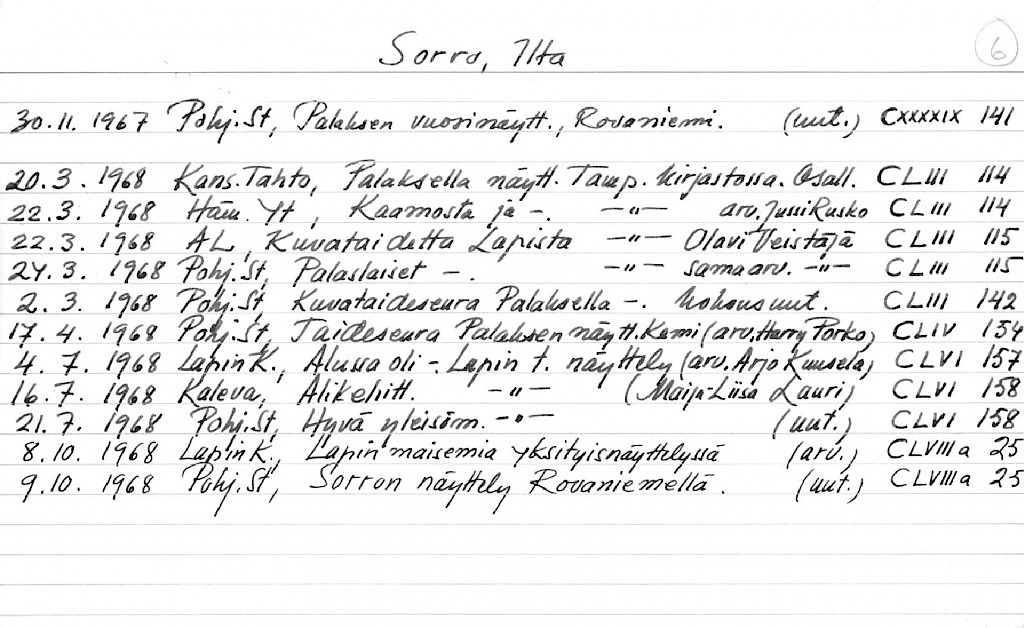 Sorro, Ilta
6
30.11. 1967 Pohj.St, Palaksen vuosinäytt., Rovaniemi. (uut.) CXXXXIX 141
20.3. 1968 Kans.Tahto, Palaksella näytt. Tamp. kirjastossa. Osall. CLIII 114
22.3. 1968 Häm. Yt, Kaamosta ja -. -"- arv. Jussi Rusko CLIII 114
22.3. 1968 AL, Kuvataidetta Lapista -"- Olavi Veistäjä CLIII 115
24.3. 1968 Pohj.St, Palaslaiset -. -"- sama arv. -"- CLIII 115
2.3. 1968 Pohj.St, Kuvataideseura Palaksella -. kokousuut. CLIII 142
17.4. 1968 Pohj.St, Taideseura Palaksen näytt. Kemi (arv. Harry Porko) CLIV 154
4.7. 1968 Lapin K., Alussa oli - Lapin t. näyttely (arv. Arjo Kuusela) CLVI 157
16.7. 1968 Kaleva, Alikehitt. -"- (Maija-Liisa Lauri) CLVI 158
21.7. 1968 Pohj.St, Hyvä yleisöm. -"- (uut.) CLVI 158
8.10. 1968 Lapin K., Lapin maisemia yksityisnäyttelyssä (arv.) CLVIIIa 25
9.10. 1968 Pohj.St, Sorron näyttely Rovaniemellä. (uut.) CLVIIIa 25